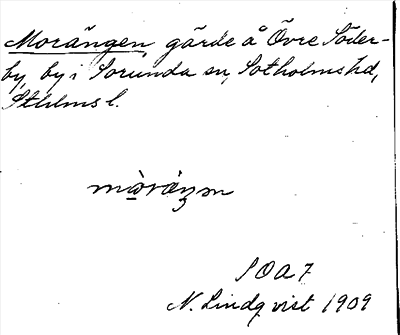 Morängen, gärde å Övre Söder-
by, by i Sorunda sn, Sotholms hd,
Sthlms l.
mò̱räŋən
SOA 7
N. Lindqvist 1909